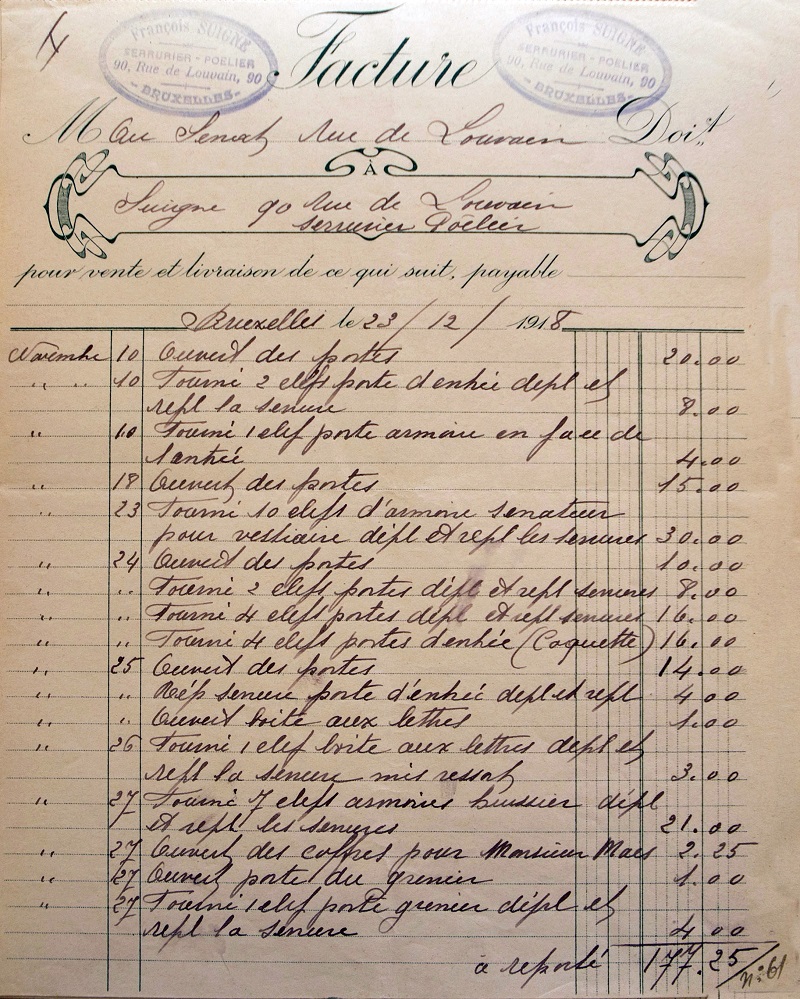 François SUIGNE
SERRURIER - POÊLIER
90, Rue de Louvain, 90
- BRUXELLES -
Facture
François SUIGNE
SERRURIER - POÊLIER
90, Rue de Louvain, 90
- BRUXELLES -
M Au Senat Rue de Louvain Doit
À
Suigne 90 Rue de Louvain
serrurier Poêlier
pour vente et livraison de ce qui suit, payable
Bruxelles le 23/12/1918
Novembre 10 Ouvert des portes 20.00
" " 10 Fourni 2 clefs porte d'entrée dépl et
repl la serrure 8.00
" 10 Fourni 1 clef porte armoire en face de
l'entrée 4.00
" 18 Ouvert des portes 15.00
" 23 Fourni 10 clefs d'armoire senateur
pour vestiaire dépl et repl les serrures 30.00
" 24 Ouvert des portes 10.00
" " Fourni 2 clefs portes dépl et repl serrures 8.00
" " Fourni 4 clefs portes dépl et repl serrures 16.00
" " Fourni 4 clefs portes d'entrée (Coquette) 16.00
" 25 Ouvert des portes 14.00
" " Rép serrure porte d'entrée depl et repl 4 00
" " Ouvert boite aux lettres 1.00
" 26 Fourni 1 clef boite aux lettres depl et
repl la serrure mis ressort 3.00
" 27 Fourni 7 clefs armoires huissier dépl
et repl les serrures 21.00
" 27 Ouvert des coffres pour Monsieur Maes 2.25
" 27 Ouvert porte du grenier 1.00
" 27 Fourni 1 clef porte grenier dépl et
repl la serrure 4 00
à reporté 177.25
N° 61